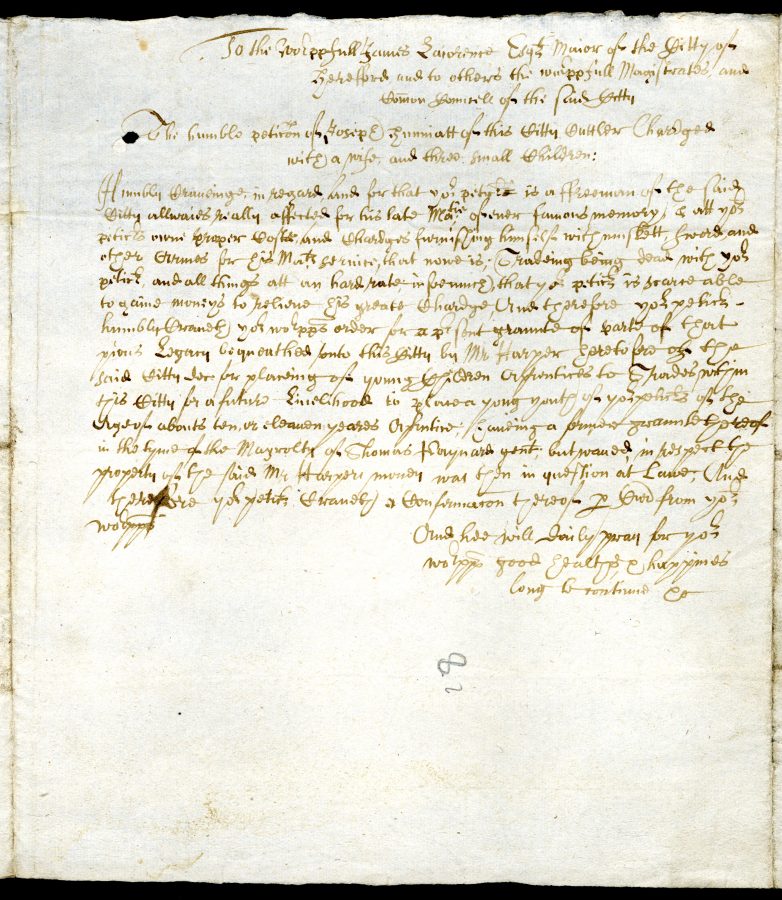 To the Worppfull James Lawrence Esqr Maior of the Citty of
Hereford and to others the worppfull Magistrates, and
Comon Councell of the said Citty
The humble peticon of Joseph of this Citty Cuttler Chardged
with a wife, and three small Children:
Humbly Craveinge, in regard, and for that yor peticr is a ffreeman of the said
Citty allwaies really affected for his late Matie of ever famous memory, & att yor
peticrs owne proper Costs, and Chardges furnishing himself with muskett sword, and
other Armes for his Mats service, that nowe is; Tradeing being dead with yor
peticr, and all things att an hard rate, insoemuch, that yor peticr is scarce able
to gaine moneys to releive his greate Chardge, And therefore yor peticr
humbly Craveth yor worpps order for a psent graunte of parte of that
pious Legacy bequeathed unto this Citty by Mr Harper heretofore of the
said Citty for placeing of young Children Apprentices to Trades within
this Citty for a future Livelihood to place a yong youth of yor peticrs of the
Age of abouts ten, or eleaven yeares Apntice, haveing a former graunte thereof
in the tyme of the Mayrolty of Thomas gent, but waved, in respect the
property of the said Mr Harpers money was then in question at Lawe, And
therefore yor peticr Craveth a Confirmacon thereof p Ord from yor
worpps
And hee will daily pray for yor
worpps good health & happines
long to continue &c
28